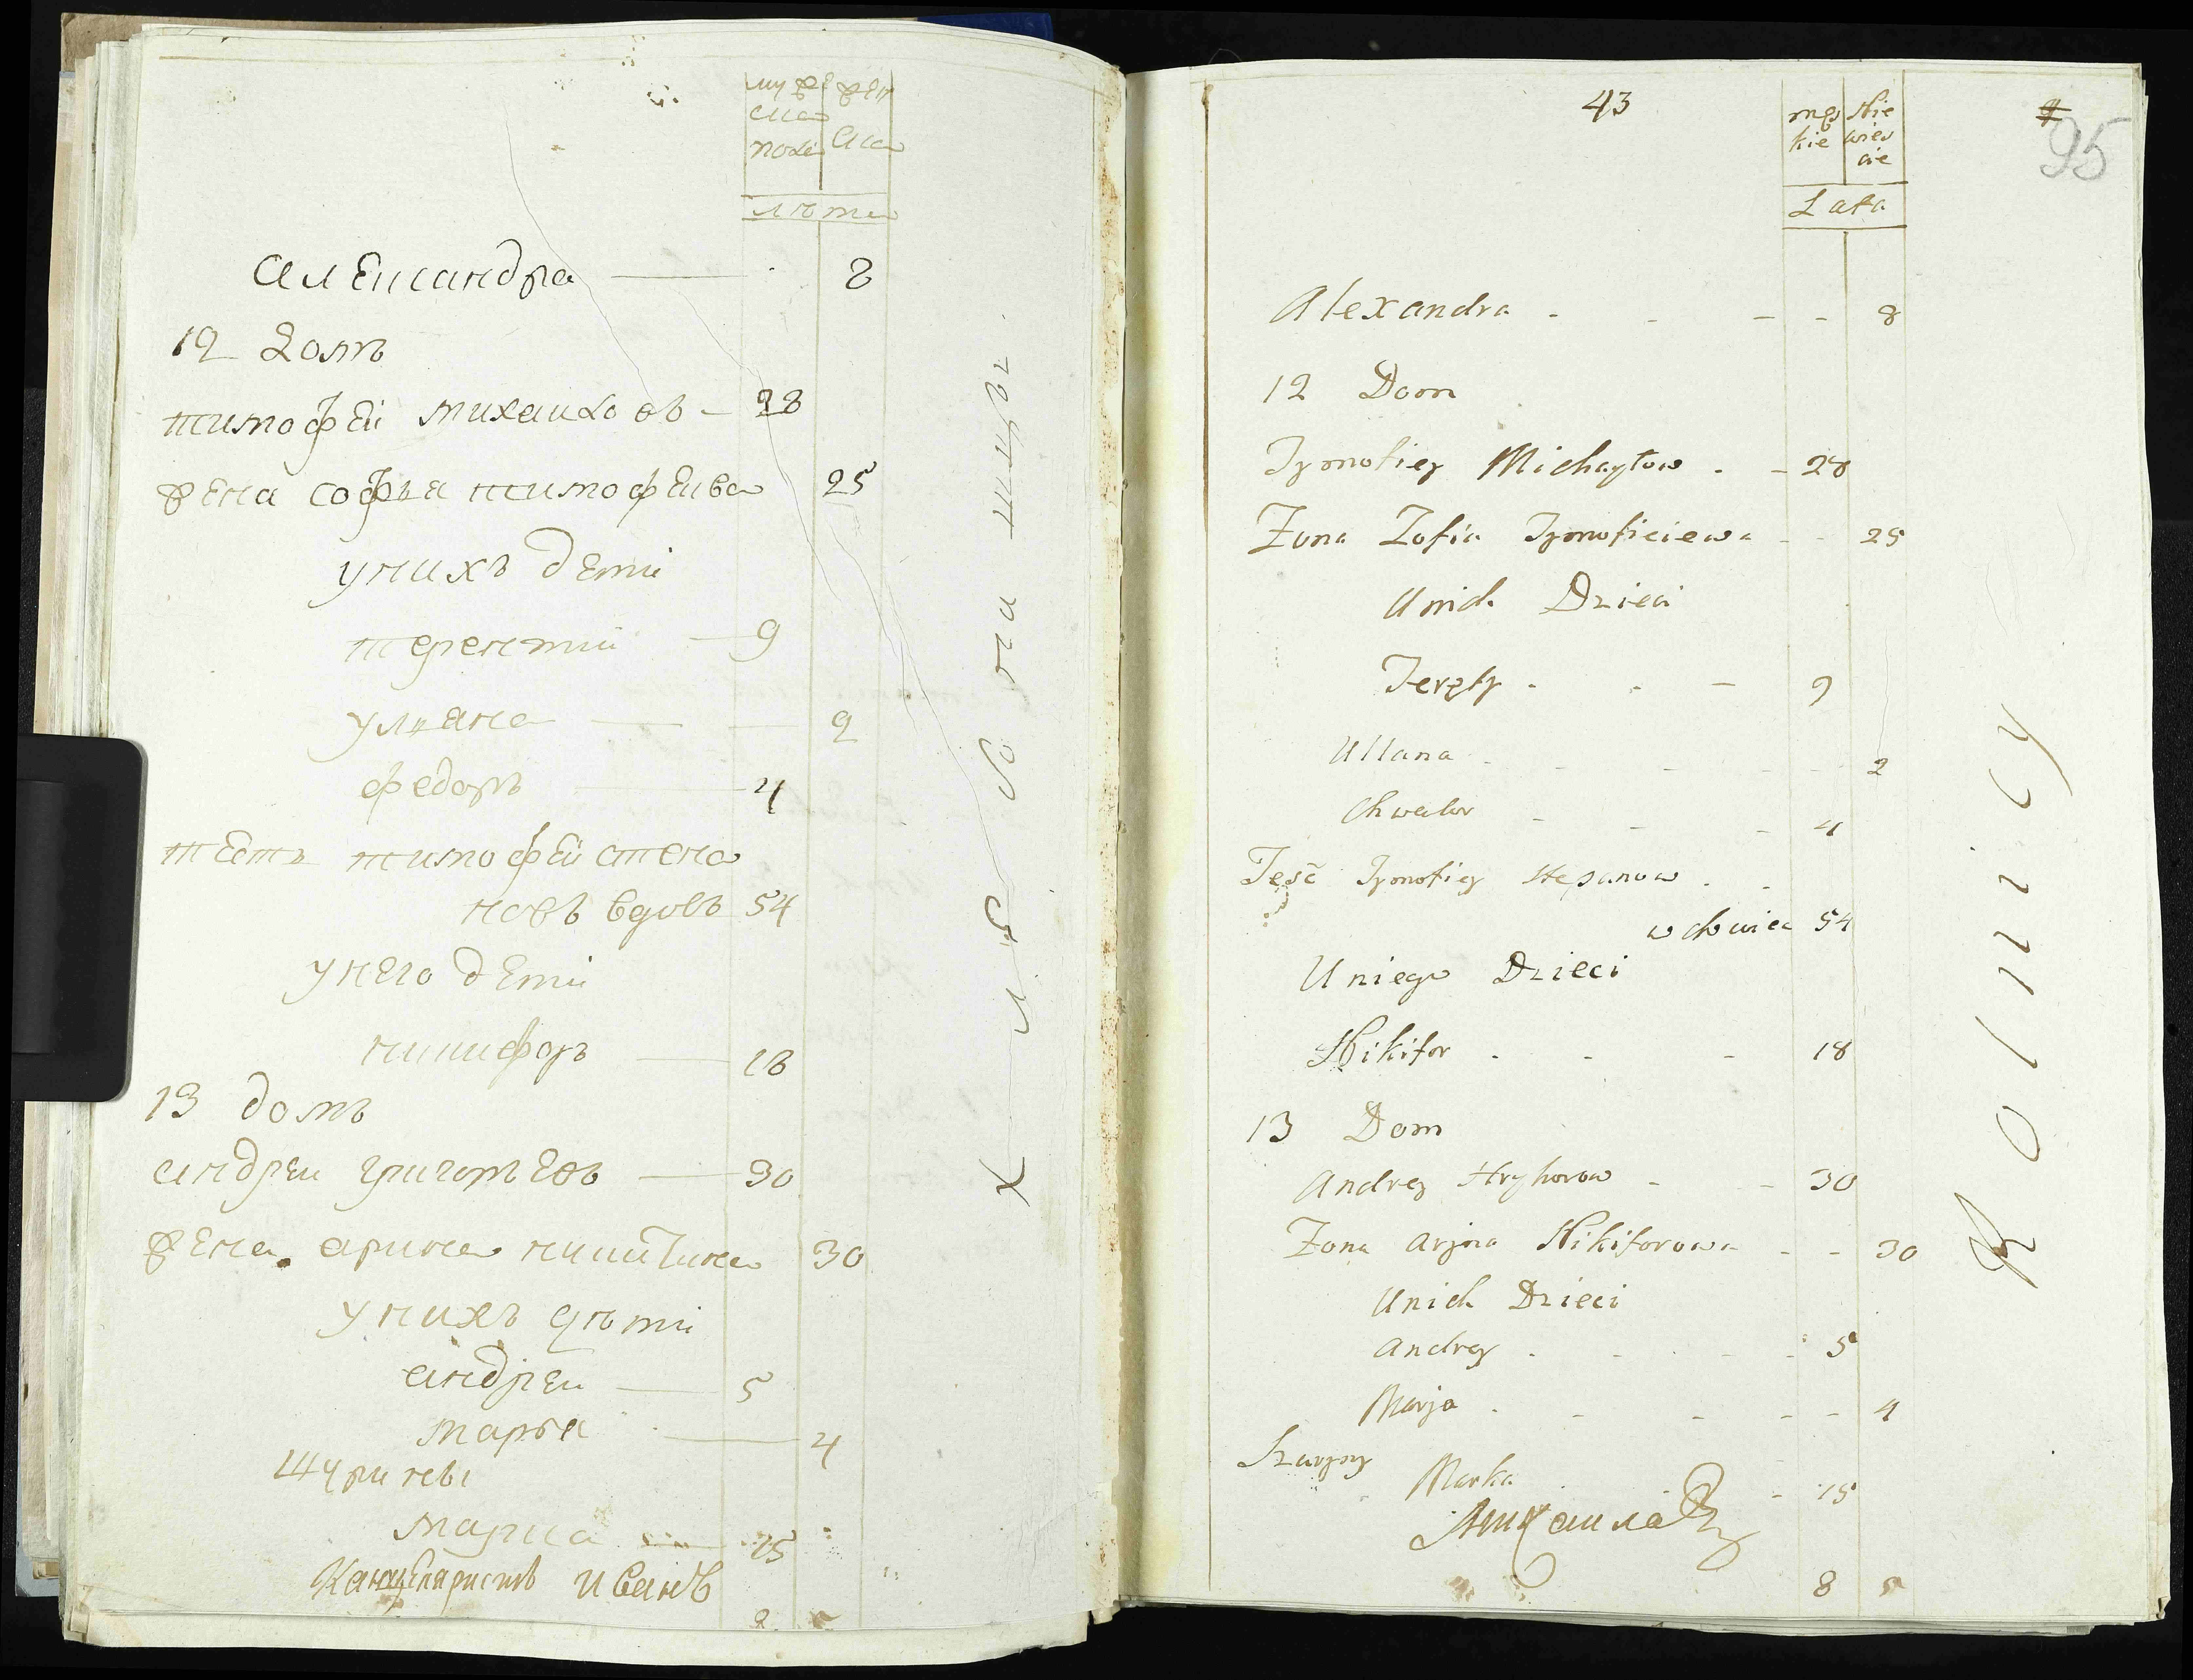 мужеска полѣ
женска
лѣта
Александра 8
12 Домъ
тимофѣи михаиловъ 28
жена софья тимофѣива 25
унихъ дѣти
терентии 9
ульяна 2
федоръ 4
тѣсть тимофѣи степа
новъ вдовъ 54
унего дѣти
никифоръ 18
13 домъ
андрѣи григорьевъ 30
жена арина никитина 30
унихъ дѣти
андрѣи 5
марья 4
Шуринъ
марка 15
Канцеляристъ иванъ
8 5
хлѣбопашцы
43
męs kie
Nie wies cie
Lata
95
Alexandra 8
12 Dom
Tymofiey Michayłow 28
Żona Zofia Tymofieiewa 25
Unich Dzieci
Teręty 9
Ullana 2
Chwedor 4
Teść Tymofiey Stepanow
wdowiec 54
Uniego Dzieci
Nikifor 18
13 Dom
Andrey Hryhorow 30
Żona Aryna Nikiforowa 30
Unich Dzieci
Andrey 5
Marja 4
Szuryny
Marka 15
8 5
Rolnicy